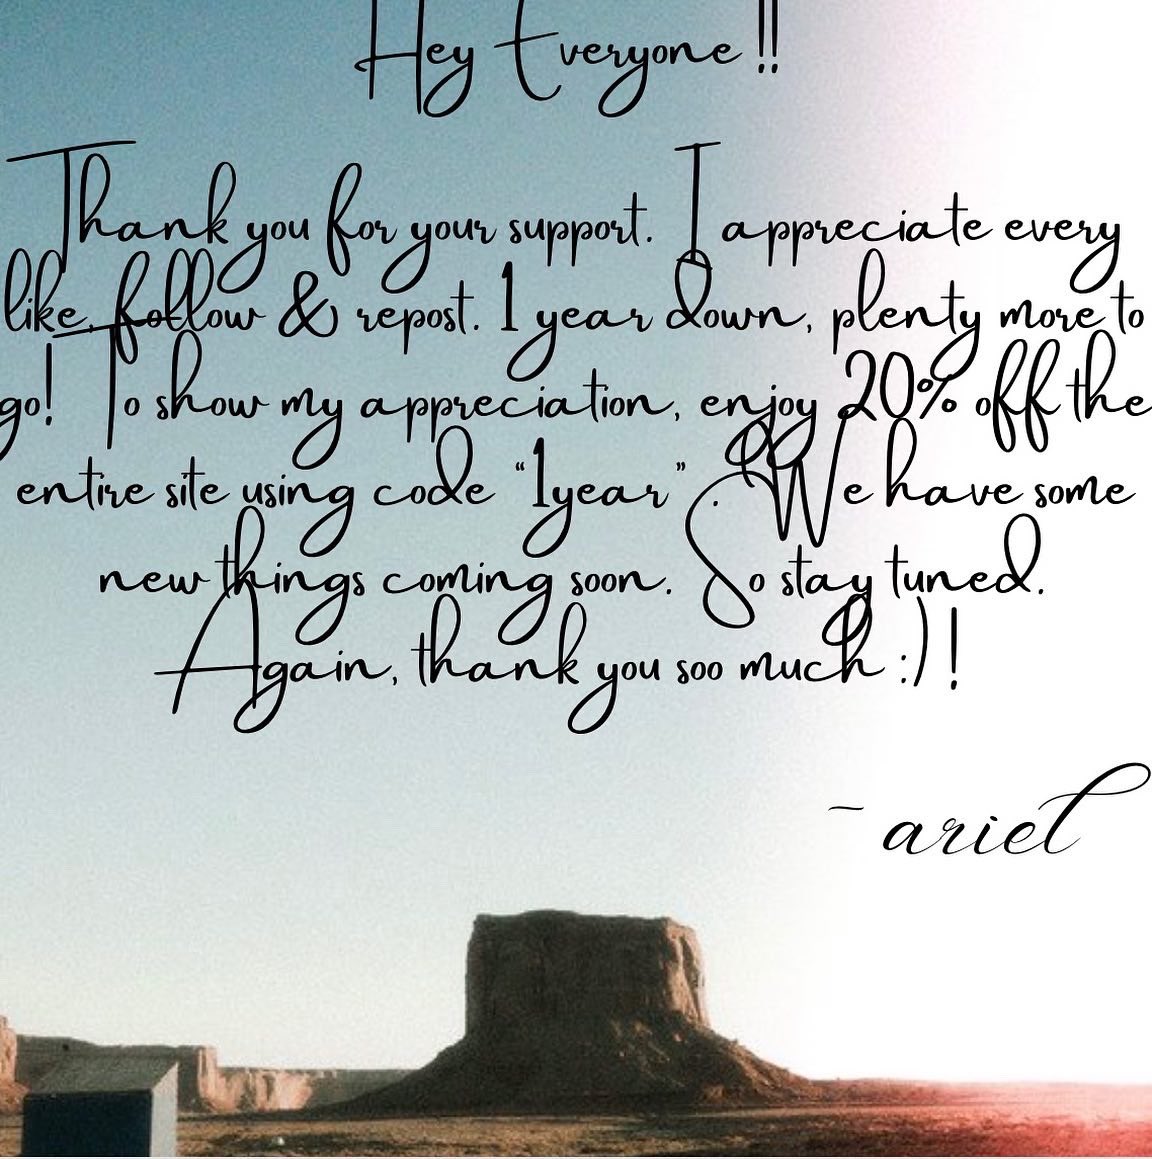 Hey Everyone !!
Thank you for your support. I appreciate every
like, follow & repost. 1 year down, plenty more to
go! To show my appreciation, enjoy 20% off the
entire site using code “1year”. We have some
new things coming soon. So stay tuned.
Again, thank you soo much :) !
~ ariel